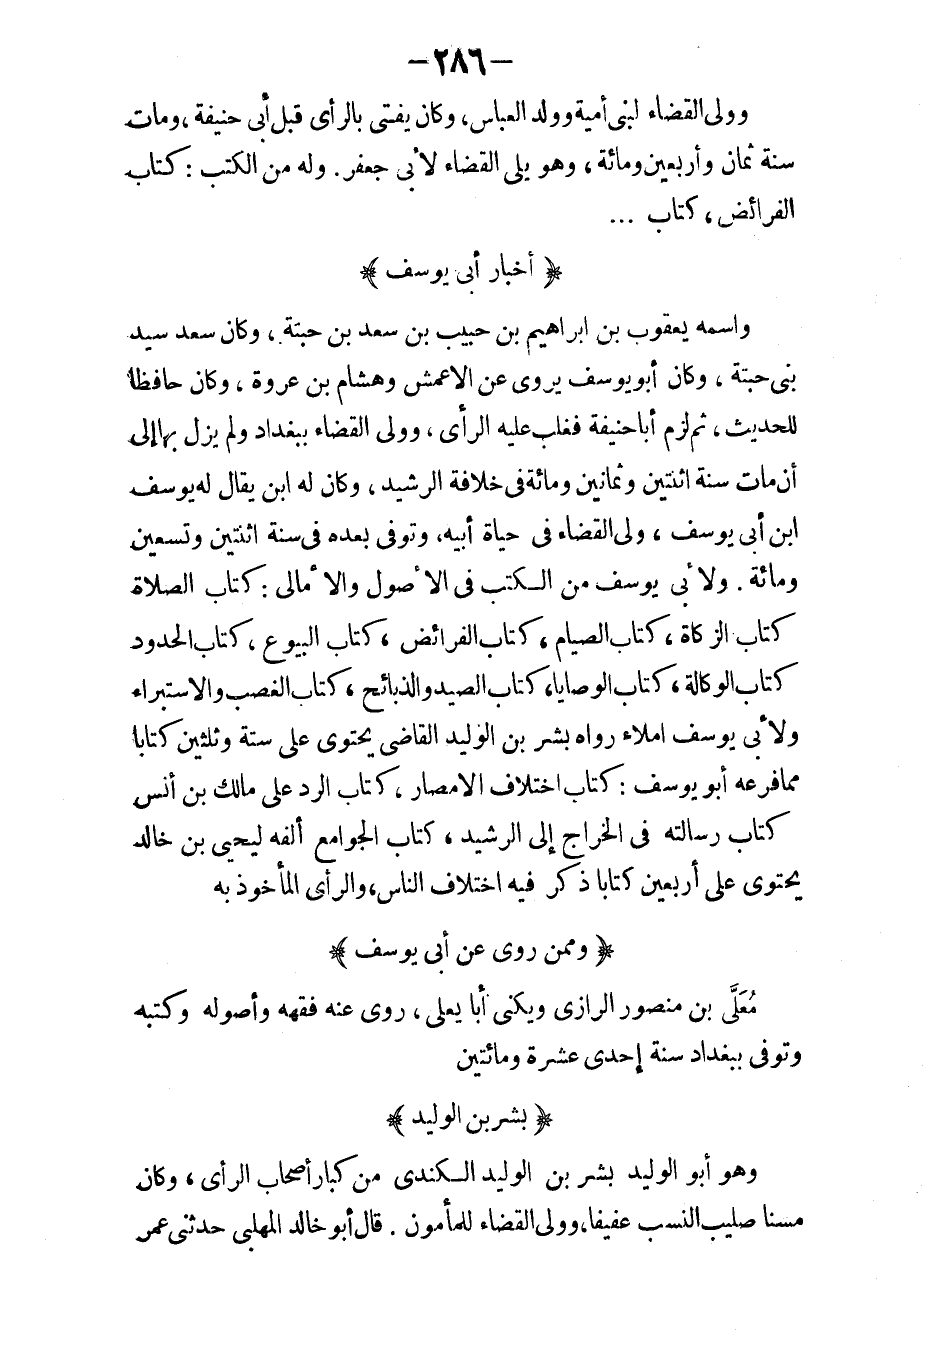 -٢٨٦-
وولى القضاء لبنى أمية وولد العباس، وكان يفتى بالرأى قبل أبى حنيفة، ومات
سنة ثمان وأربعين ومائة، وهو يلى القضاء لأبى جعفر. وله من الكتب: كتاب
الفرائض، كتاب ...
﴿ أخبار أبى يوسف ﴾
واسمه يعقوب بن ابراهيم بن حبيب بن سعد بن حبتة، وكان سعد سيد
بنى حبتة، وكان أبو يوسف يروى عن الاعمش وهشام بن عروة، وكان حافظا
للحديث، ثم لزم أبا حنيفة فغلب عليه الرأى، وولى القضاء ببغداد ولم يزل بها إلى
أن مات سنة اثنتين وثمانين ومائة فى خلافة الرشيد، وكان له ابن يقال له يوسف
ابن أبى يوسف، ولى القضاء فى حياة أبيه، وتوفى بعده فى سنة اثنتين وتسعين
ومائة. ولأبى يوسف من الكتب فى الأصول والأمالى: كتاب الصلاة
كتاب الزكاة، كتاب الصيام، كتاب الفرائض، كتاب البيوع، كتاب الحدود
كتاب الوكالة، كتاب الوصايا، كتاب الصيد والذبائح، كتاب الغصب والاستبراء
ولأبى يوسف املاء رواه بشر بن الوليد القاضى يحتوى على ستة وثلثين كتابا
مما فرعه أبو يوسف: كتاب اختلاف الامصار، كتاب الرد على مالك بن أنس
كتاب رسالته فى الخراج إلى الرشيد، كتاب الجوامع ألفه ليحيى بن خالد
يحتوى على أربعين كتابا ذكر فيه اختلاف الناس، والرأى المأخوذ به
﴿ وممن روى عن أبى يوسف ﴾
مُعَلَّى بن منصور الرازى ويكنى أبا يعلى، روى عنه فقهه وأصوله وكتبه
وتوفى ببغداد سنة إحدى عشرة ومائتين
﴿ بشر بن الوليد ﴾
وهو أبو الوليد بشر بن الوليد الكندى من كبار أصحاب الرأى، وكان
مسنا صليب النسب عفيفا، وولى القضاء للمأمون. قال أبو خالد المهلبى حدثنى عمر